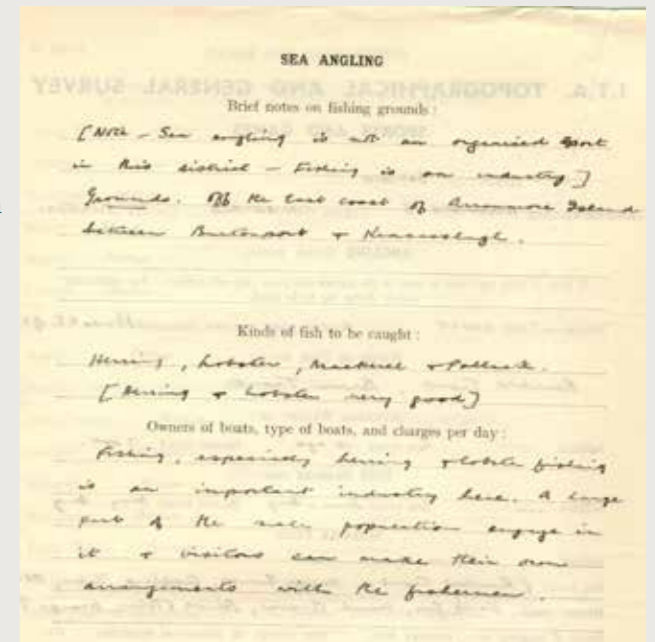 SEA ANGLING
I.T.A. TOPOGRAPHICAL AND GENERAL SURVEY
Brief notes on fishing grounds :
[Note – Sea angling is not an organised sport
in this district – Fishing is an industry]
Grounds. Off the East coast of Arranmore Island
between Burtonport & Kincasslagh.
Kinds of fish to be caught :
Herring, Lobster, Mackerel & Pollack.
[Herring & Lobster very good]
Owners of boats, type of boats, and charges per day :
Fishing, especially herring & lobster fishing
is an important industry here. A large
part of the male population engage in
it & visitors can make their own
arrangements with the fishermen.